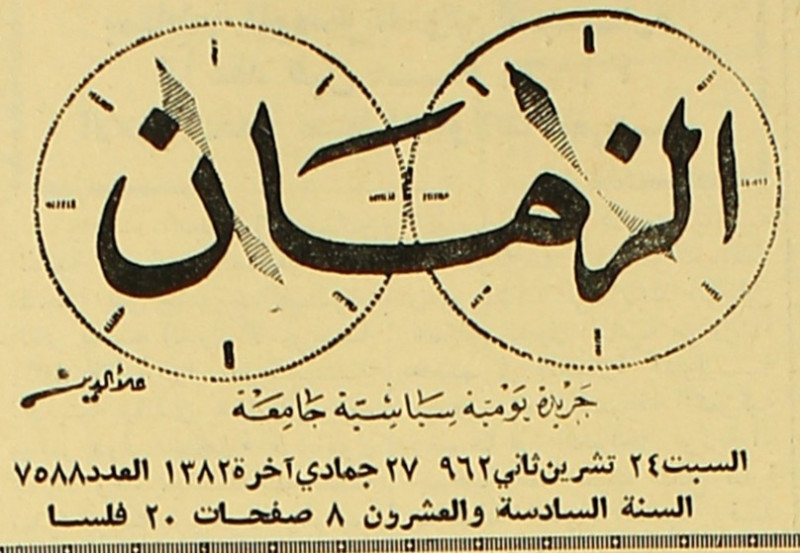 الزمان
علاءالدين
جريدة يومية سياسية جامعة
السبت ٢٤ تشرين ثاني ٩٦٢ ٢٧ جمادي آخرة ١٣٨٢ العدد ٧٥٨٨
السنة السادسة والعشرون ٨ صفحات ٢٠ فلسا